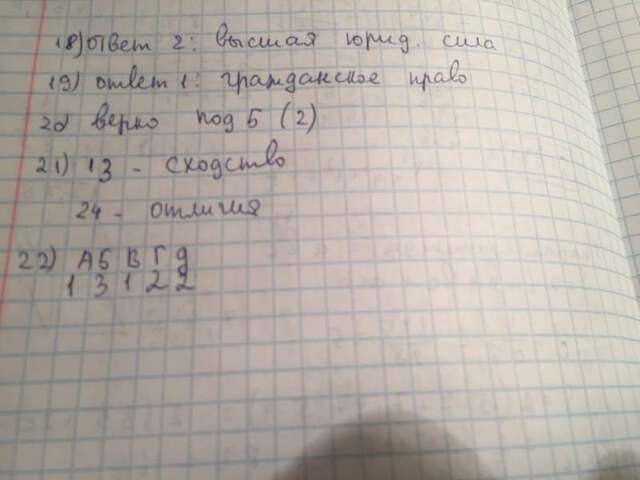 18) ответ 2: высшая юрид. сила
19) ответ 1: гражданское право
20 верно под Б (2)
21) 13 - сходство
24 - отличия
22) А Б В Г Д
1 3 1 2 2